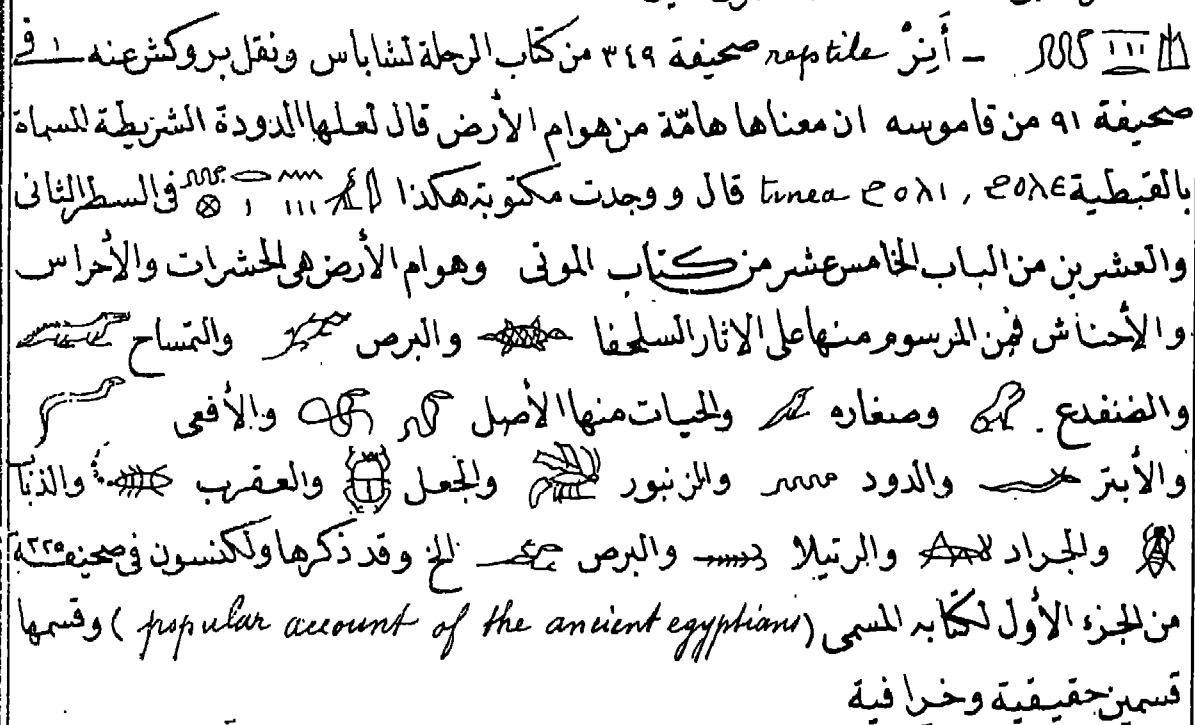 – أَنِرْ reptile صحيفة ٣٤٩ من كتاب الرحلة لشاباس ونقل بروكش عنه فى
صحيفة ٩١ من قاموسه ان معناها هامّة من هوام الأرض قال لعلها الدودة الشريطة المسماة
بالقبطية ϩⲟⲗⲓ , ϩⲟⲗⲉ tinea قال ووجدت مكتوبة هكذا فى السطر الثانى
والعشرين من الباب الخامس عشر من كتاب الموتى وهوام الأرض هى الحشرات والأحراس
والأحناش فمن المرسوم منها على الاثار السلحفا والبرص والتمساح
والضفدع . وصغاره والحيات منها الأصل والأفعى
والأبتر والدود والزنبور والجعل والعقرب والذباب
والجراد والرتيلا والبرص الخ وقد ذكرها ولكنسون فى صحيفة ٢٢٥
من الجزء الأول لكتابه المسمى (popular account of the ancient egyptians) وقسمها
قسمين حقيقية وخرافية